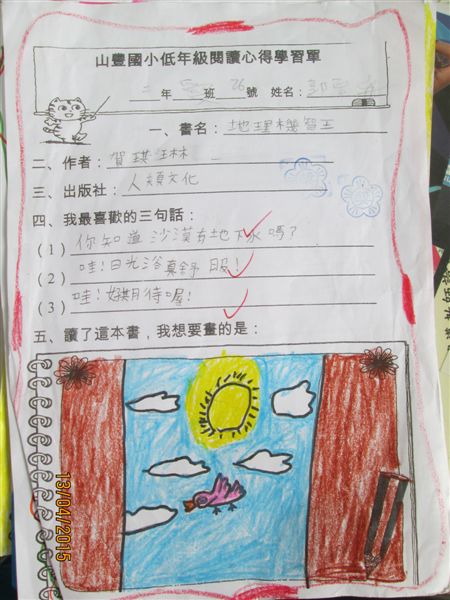 山豐國小低年級閱讀心得學習單
二年 班 26 號 姓名：
一、書名：地理機智王
二、作者：賀琪琳
三、出版社：人類文化
四、我最喜歡的三句話：
(1) 你知道沙漠有地下水嗎？
(2) 哇！日光浴真舒服！
(3) 哇！好期待喔！
五、讀了這本書，我想要畫的是：
13/04/2015